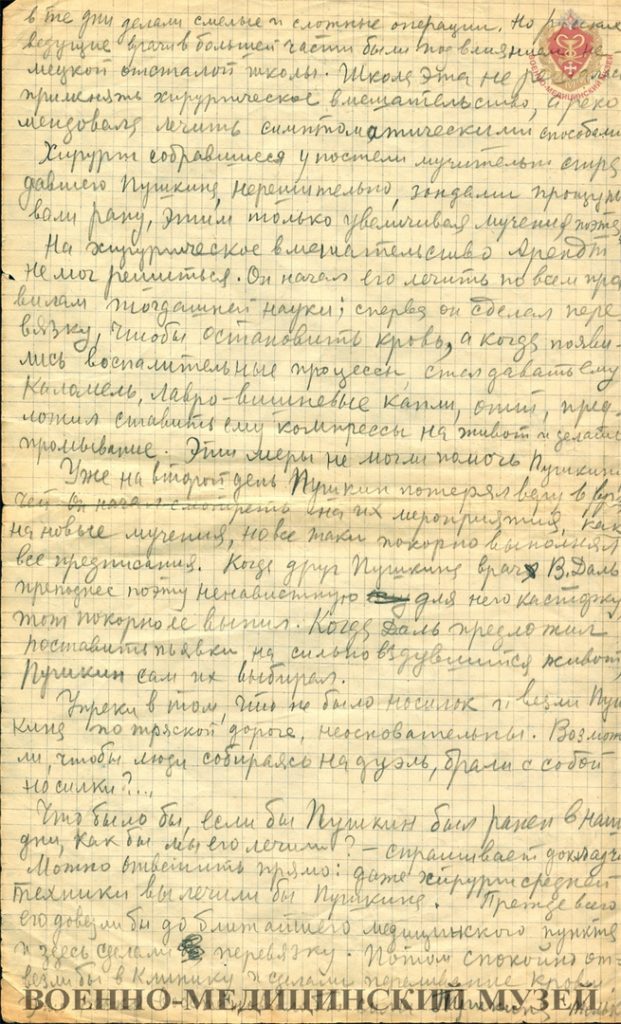 в те дни делали смелые и сложные операции. Но русские
ведущие врачи в большей части были под влиянием не-
мецкой отсталой школы. Школа эта не решалась
применять хирургическое вмешательство, а реко
мендовала лечить симптоматическими способами
Хирурги собравшиеся у постели мучительно стра
давшего Пушкина, нерешительно, зондами прощупы
вали рану, этим только увеличивая мучения поэта
На хирургическое вмешательство Арендт
не мог решиться. Он начал его лечить по всем пра
вилам тогдашней науки; сперва он сделал пере
вязку, чтобы остановить кровь, а когда появи-
лись воспалительные процессы, стал давать ему
Каломель, лавро-вишневые капли, опий, пред
ложил ставить ему компрессы на живот и делать
промывание. Эти меры не могли помочь Пушкину
Уже на второй день Пушкин потерял веру в вра
чей он начал смотреть на их мероприятия, как
на новые мучения, но все таки покорно выполнял
все предписания. Когда друг Пушкина врач В. Даль
преподнес поэту ненавистную для него касторку
тот покорно ее выпил. Когда Даль предложил
поставить пьявки на сильно вздувшийся живот,
Пушкин сам их выбирал.
Упреки в том, что не было носилок и везли Пуш
кина по тряской дороге, неосновательны. Возмож
ли, чтобы люди собираясь на дуэль, брали с собой
носилки?...
Что было бы, если бы Пушкин был ранен в наши
дни, как бы мы его лечили? – спрашивает докладч
Можно ответить прямо: даже хирурги средней
техники вылечили бы Пушкина. Прежде всего
его довезли бы до ближайшего медицинского пункта
и здесь сделали перевязку. Потом спокойно от-
везли бы в Клинику и сделали переливание крови
ВОЕННО-МЕДИЦИНСКИЙ МУЗЕЙ